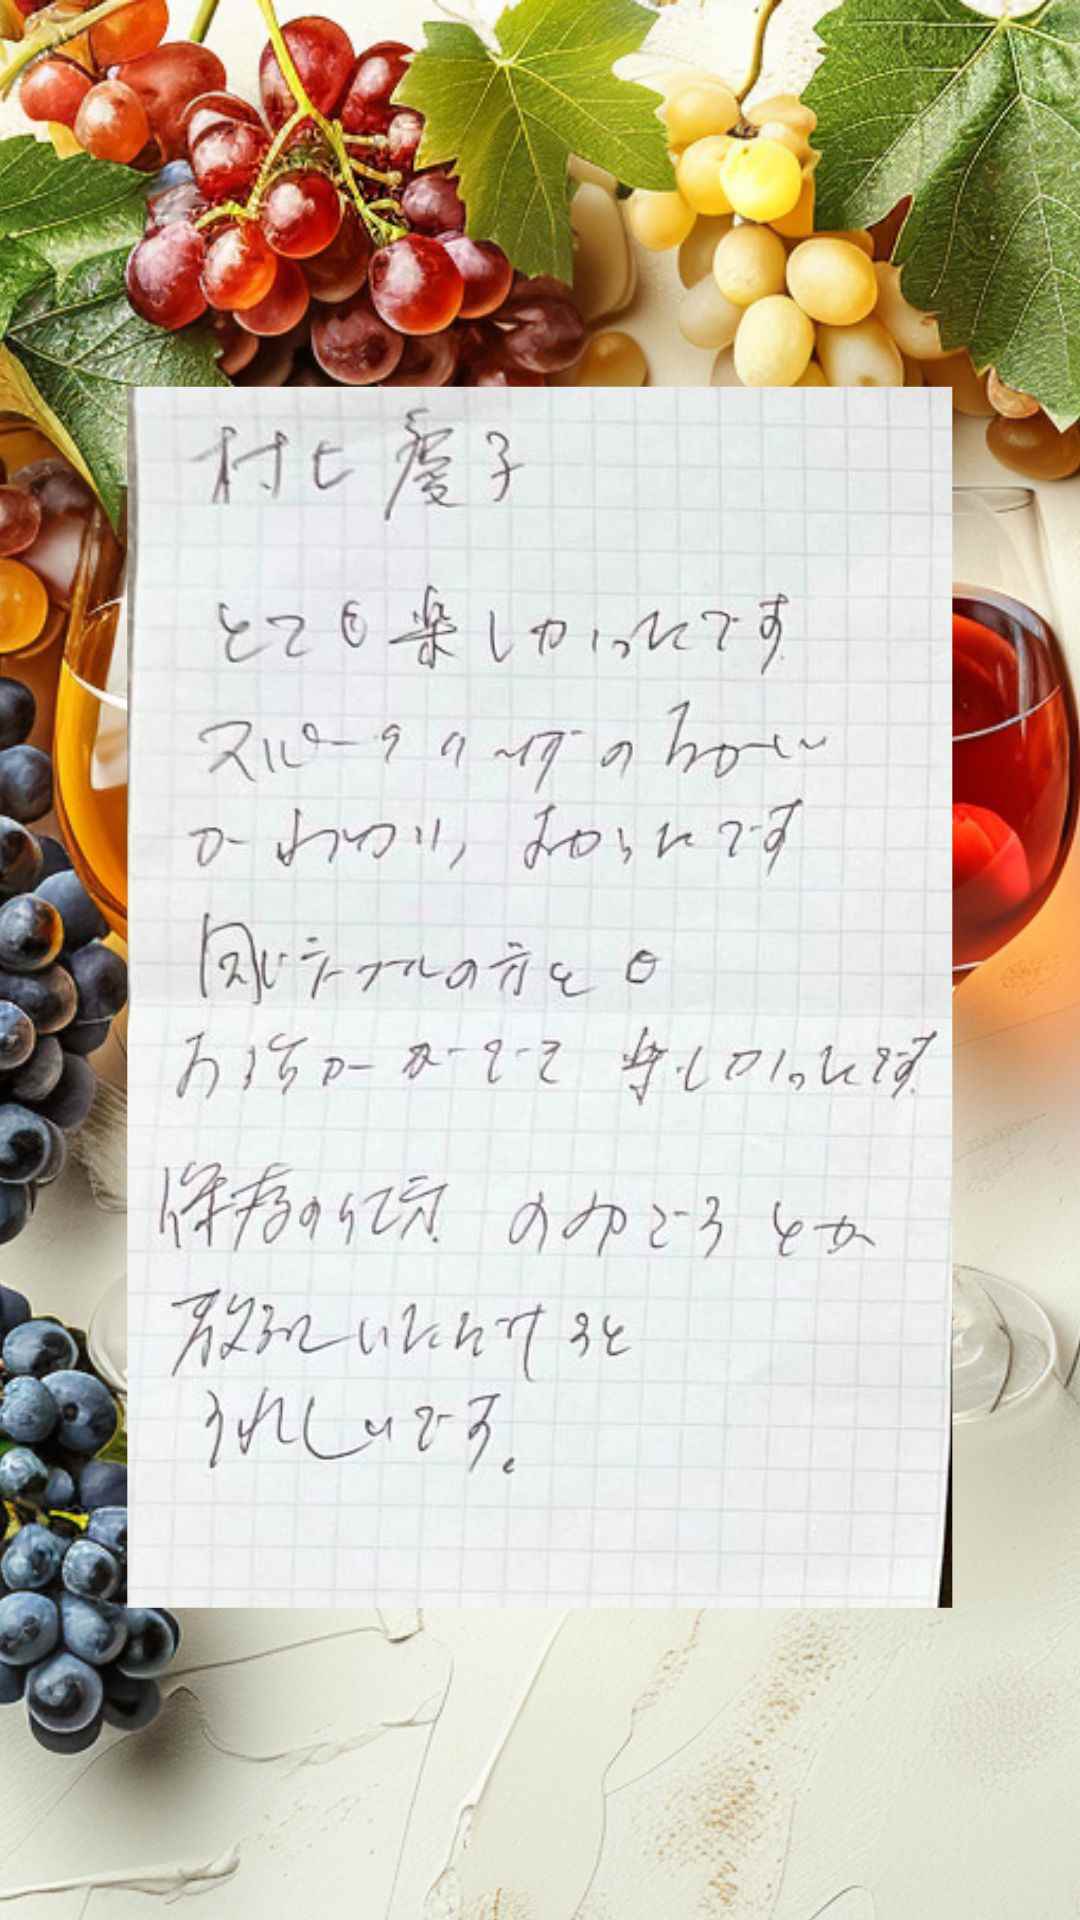 村上慶子
とても楽しかったです
スパークリングのちがい
がわかり、よかったです
同じテーブルの方とも
お話ができて 楽しかったです
保存の仕方 のみごろ とか
教えていただけると
うれしいです。